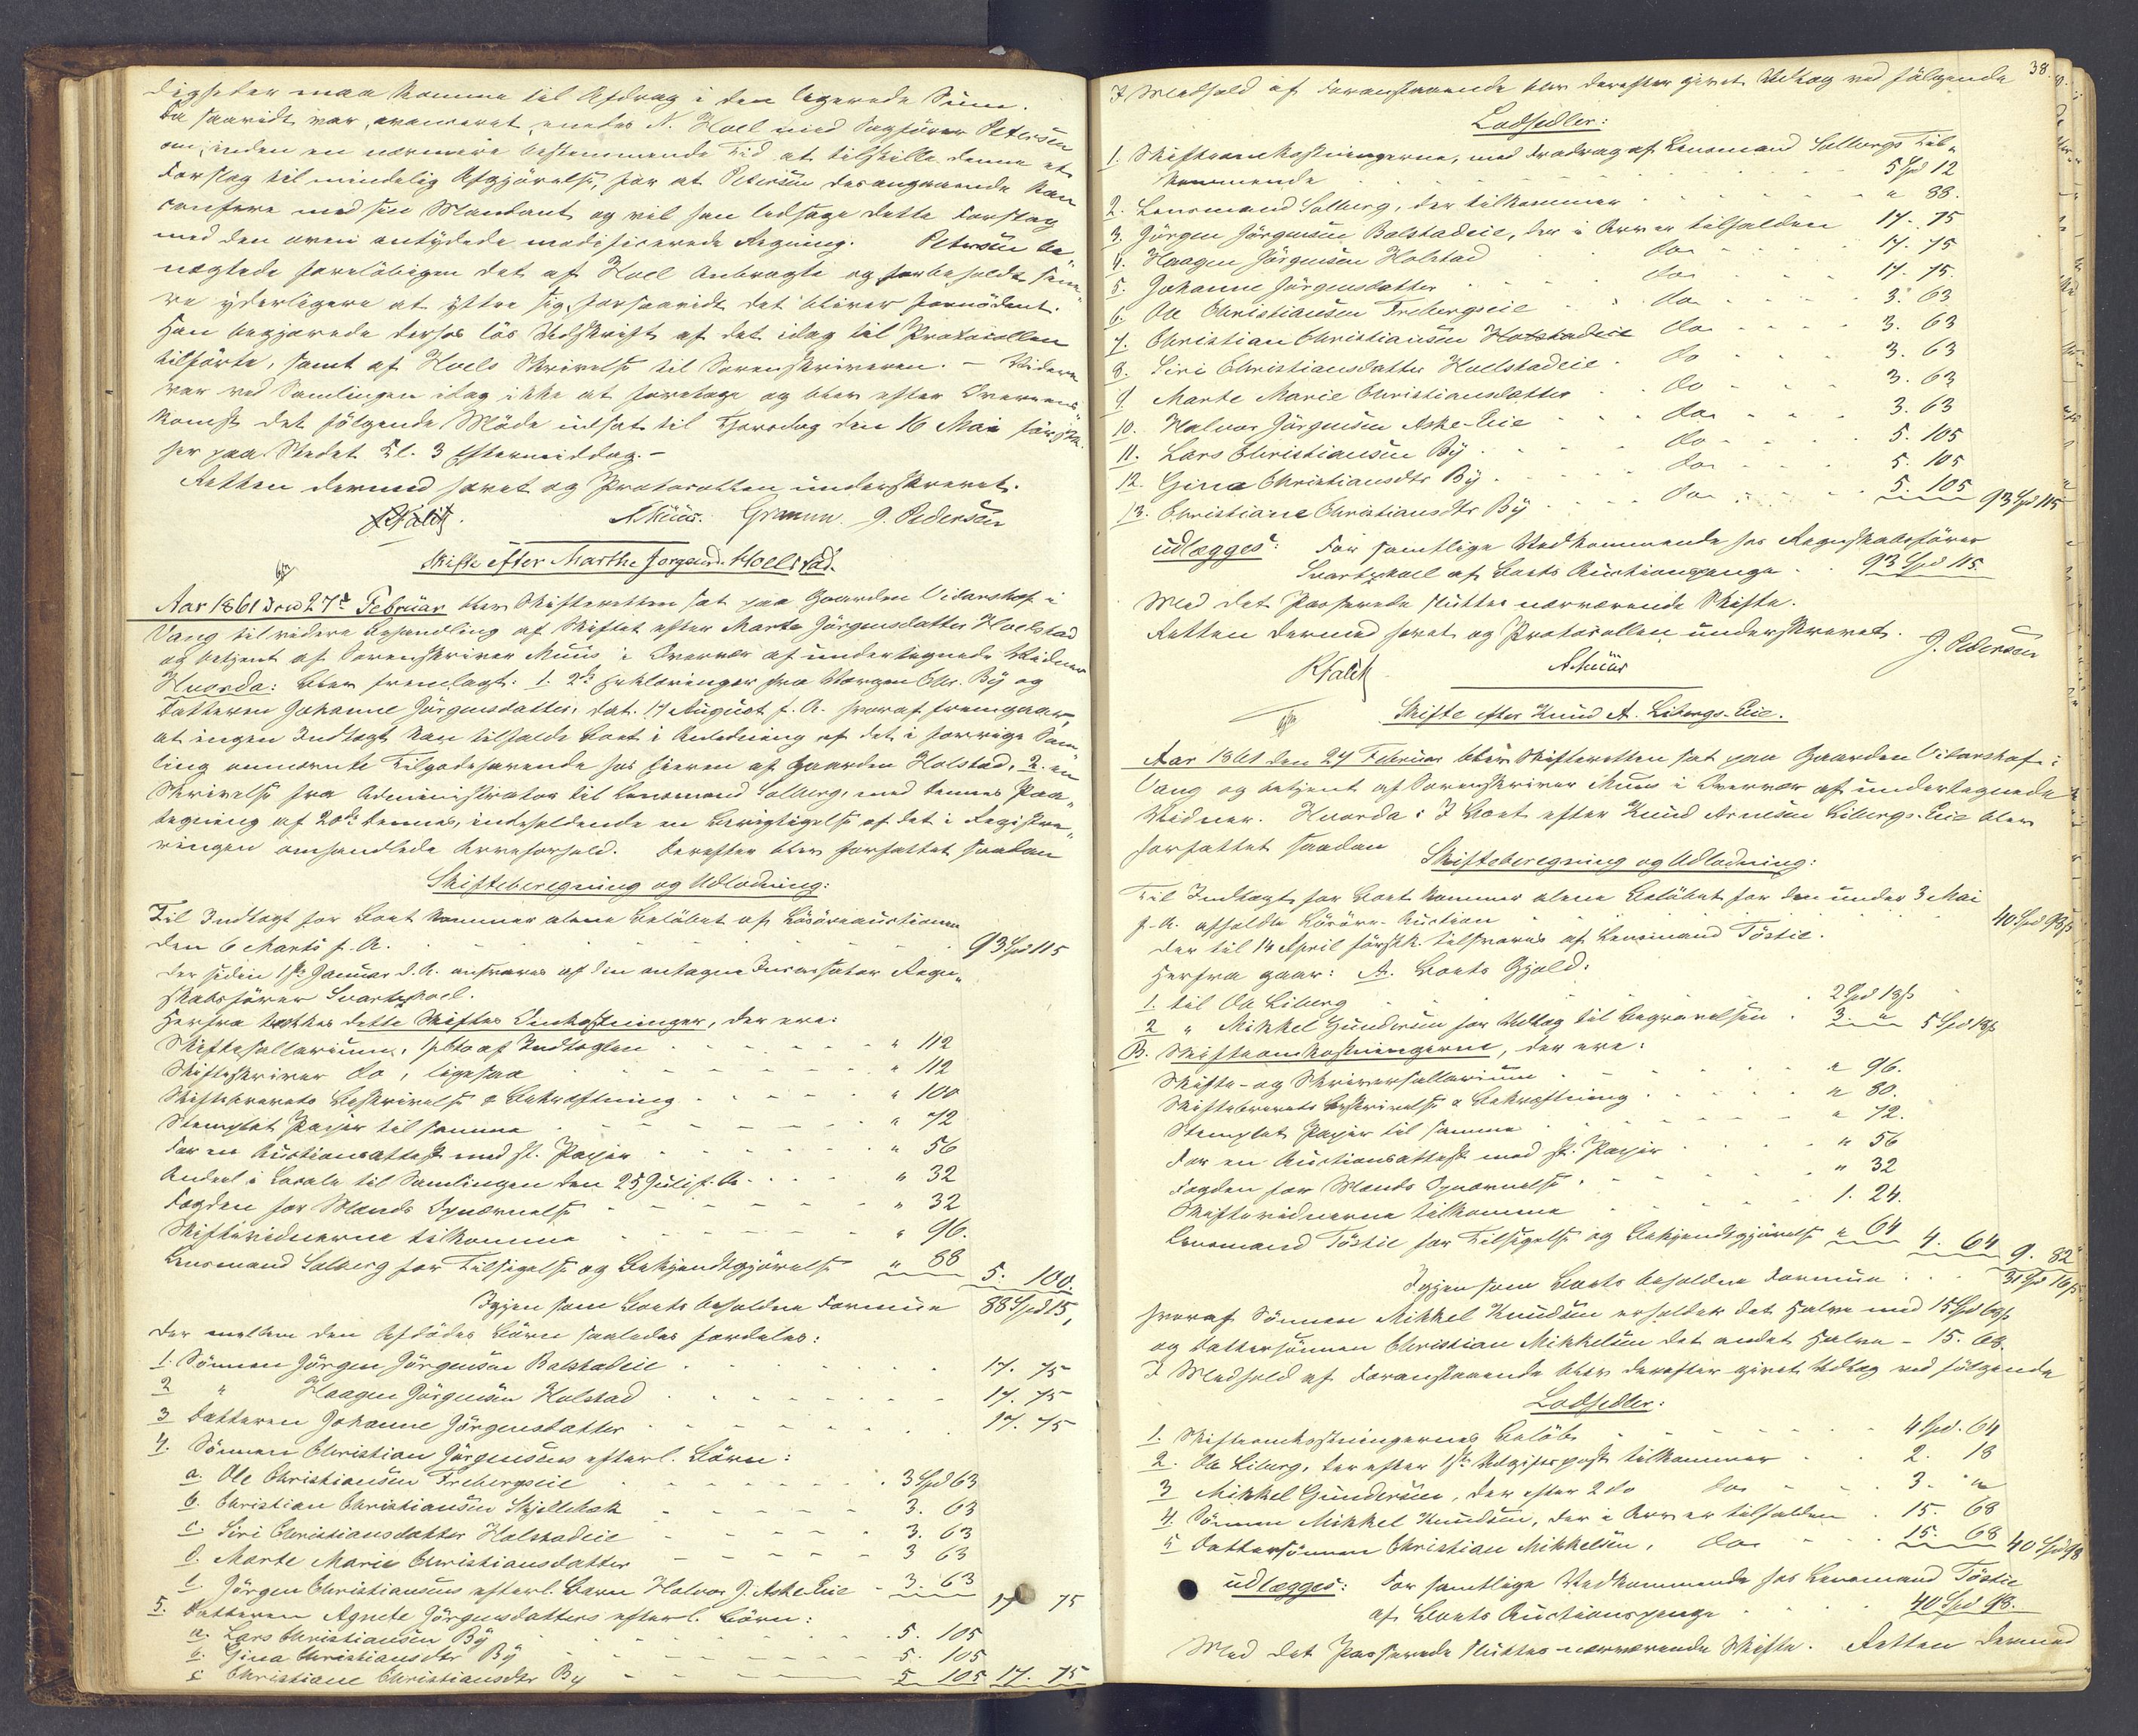 digheder maa komme til Afdrag i den begjerede Sum.
Da saavidt var avanceret, enedes N. Hoel med Sagfører Petersen
om, inden en nærmere bestemmende Tid at tilstille denne et
Forslag til mindelig Afgjørelse, for at Petersen desangaaende kan
conferere med sin Mandant og vil han ledsage dette Forslag
med den oven antydede modificerede Regning. Petersen be„
nægtede foreløbigen det af Hoel Anbragte og forbeholdt sene„
re yderligere at yttre sig, forsaavidt det bliver fornødent.
Han begjærede derhos løs Udskrift af det idag til Protocollen
tilførte, samt af Hoels Skrivelse til Sorenskriveren. – Videre
var ved Samlingen idag ikke at foretage og blev efter Overens„
komst det følgende Møde udsat til Thorsdag den 16 Mai førstk.
her paa Stedet Kl. 3 Eftermiddag. –
Retten dermed hævet og Protocollen underskrevet.
RFalck. AMüus. Gramm. J. Pedersen
Skifte efter Marthe Jørgensd. Hoelstad.
Aar 1861 den 27de Februar blev Skifteretten sat paa Gaarden Vidarshof i
Vang til videre Behandling af Skiftet efter Marte Jørgensdatter Hoelstad
og betjent af Sorenskriver Muus i Overvær af undertegnede Vidner
Hvorda: blev fremlagt: 1. 2de Erklæringer fraVærgen Chr. By og
Datteren Johanne Jørgensdatter, dat. 17 August f. A. hvoraf fremgaar,
at ingen Indtægt kan tilfalde Boet i Anledning af det i forrige Sam„
ling omnævnte Tilgodehavende hos Eieren af Gaarden Holstad, 2. en
Skrivelse fra Administrator til Lensmand Solberg, med dennes Paa„
tegning af 20de dennes, indeholdende en Berigtigelse af det i Registre„
ringen omhandlede Arveforhold. Derefter blev forfattet saadan
Skifteberegning og Udlodning:
Til Indtægt for Boet kommer alene Beløbet af Løsøreauctionen
den 6 Marts f. A. 93 Spd 115
der siden 1ste Januar d. A. ansvares af den antagne Incassator Regn„
skabsfører Svartzhoel.
Herfra trækkes dette Skiftes Omkostninger, der ere:
Skiftesallarium, 1 pCto af Indtægten " 112
Skifteskriver do, ligesaa " 112
Skiftebrevets Beskrivelse & Bekræftning " 100
Stemplet Papir til samme " 72
For en Auctionsattest med st. Papir " 56
Andel i Locale til Samlingen den 25 Juli f. A. " 32
Fogden for Mænds Opnævnelse " 32
Skiftevidnerne tilkomme " 96.
Lensmand Solberg for Tilsigelse og Bekjendtgjørelse " 88 5. 100.
Igjen som Boets beholdne Formue 88 Spd 15,
der mellem den Afdødes Børn saaledes fordeles:
1. Sønnen Jørgen Jørgensen Balstadeie 17. 75
2 " Haagen Jørgensen Holstad 17. 75
3 Datteren Johanne Jørgensdatter 17. 75
4. Sønnen Christian Jørgensens efterl. Børn:
a. Ole Christiansen Frebergseie 3 Spd 63
b. Christian Christiansen Skjellebæk 3. 63
c. Siri Christiansdatter Holstadeie 3. 63
d. Marte Marie Christiansdatter 3 63
e. Jørgen Christiansens efterl. Barn Halvor J. Aske Eie 3. 63 17 75
5. Datteren Agnete Jørgensdatters efterl. Børn:
a. Lars Christiansen By 5. 105
b. Gina Christiansdtr By 5. 105
c Christiane Christiansdtr By 5 105 17. 75
38.
I Medhold af Foranstaaende blev derefter gjort Udlæg ved følgende
Lodsedler:
1. Skifteomkostningerne, med Fradrag af Lensmand Solbergs Til„
kommende 5 Spd 12
2. Lensmand Solberg, der tilkommer " 88.
3. Jørgen Jørgensen Balstadeie, der i Arv er tilfalden 17. 75
4. Haagen Jørgensen Holstad do 17. 75
5. Johanne Jørgensdatter do 17. 75.
6. Ole Christiansen Frebergseie do 3. 63
7. Christian Christiansen Holstadeie do 3. 63
8. Siri Christiansdatter Hoelstadeie do 3. 63
9. Marte Marie Christiansdatter do 3. 63
10. Halvor Jørgensen Aske-Eie do 3. 63
11. Lars Christiansen By do 5. 105
12. Gina Christiansdtr By do 5. 105
13. Christiane Christiansdtr By do 5. 105 93 Spd 115
udlægges: For samtlige Vedkommende hos Regnskabsfører
Svartzhoel af Boets Auctionspenge 93 Spd 115.
Med det Passerede sluttes nærværende Skifte.
Retten dermed hævet og Protocollen underskrevet.
RFalck AMüus J. Pedersen
Skifte efter Knud A. Libergs-Eie.
Aar 1861 den 27 Februar blev Skifteretten sat paa Gaarden Vidarshof i
Vang og betjent af Sorenskriver Muus i Overvær af undertegnede
Vidner. Hvorda: I Boet efter Knud Arnesen Libergs-Eie blev
forfattet saadan
Skifteberegning og Udlodning:
Til Indtægt for Boet kommer alene Beløbet for den under 3 Mai
f. A. afholdte Løsøre-Auction 40 Spd 98 s
der til 14 April førstk. tilsvares af Lensmand Töstie.
Herfra gaar: A. Boets Gjæld:
1. til Ole Liberg 2 Spd 18 s
2 " Mikkel Gundersen for Udlæg til Begravelsen 3. " 5 Spd 18 s
B. Skifteomkostningerne, der ere:
Skifte- og Skriversallarium " 96.
Skiftebrevets Beskrivelse & Bekræftning " 80.
Stemplet Papir til samme " 72.
For en Auctionsattest med st. Papir " 56
Fogden for Mænds Opnævnelse " 32
Skiftevidnerne tilkomme 1. 24.
Lensmand Töstie for Tilsigelse og Bekjendtgjørelse " 64 4. 64 9. 82
Igjen som Boets beholdne Formue 31 Spd 16 s
hvoraf Sønnen Mikkel Knudsen erholder det Halve med 15 Spd 68 s
og Dattersønnen Christian Mikkelsen det andet Halve – 15. 68.
I Medhold af Foranstaaende blev derefter gjort Udlæg ved følgende
Lodsedler:
1. Skifteomkostningernes Beløb 4 Spd. 64
2. Ole Liberg, der efter 1ste Udgiftspost tilkommer 2. 18
3 Mikkel Gundersen, der efter 2 do do 3. "
4. Sønnen Mikkel Knudsen, der i Arv er tilfalden 15. 68
5 Dattersønnen Christian Mikkelsen, do 15. 68 40 Spd 98
udlægges: For samtlige Vedkommende hos Lensmand Töstie
af Boets Auctionspenge 40 Spd 98.
Med det Passerede sluttes nærværende Skifte. Retten dermed